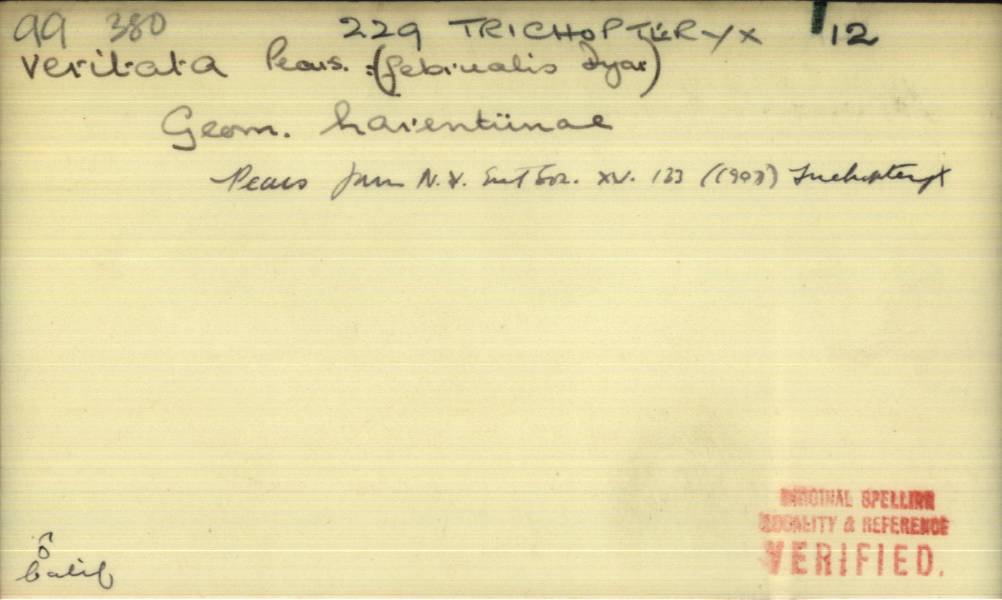 99 380 229 TRICHOPTERYX 12
veritata Pears. :(februalis Dyar)
Geom. Larentiinae
Pears Journ N.Y. Ent Soc. XV. 133 (1907) Trichopteryx
ORIGINAL SPELLING
LOCALITY & REFERENCE
VERIFIED.
♂
Calif